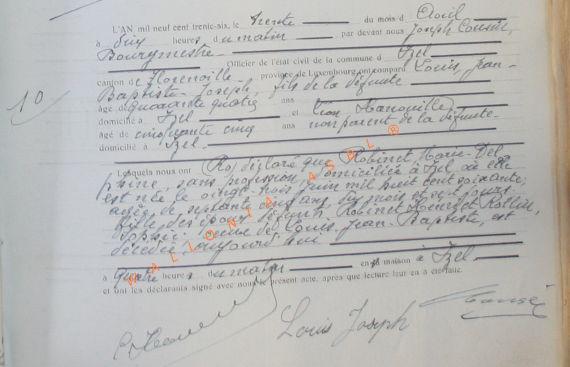 L'AN, mil neuf cent trente-six, le trente du mois d'Avril
à dix heures du matin, par devant nous Joseph
Bourgmestre Officier de l'état civil de la commune d'Izel
canton de Florenville province de Luxembourg ont comparu Louis, Jean-
Baptiste-Joseph, fils de la défunte
âgé de quarante quatre ans
domicilié à Izel et Léon
âgé de cinquante cinq ans non parent de la défunte
domicilié à Izel.
10
Lesquels nous ont déclaré que Robinet Marie-Del
phine, sans profession, domiciliée à Izel où elle
est née le vingt-trois juin mil huit cent soixante,
âgée de septante cinq ans dix mois et sept jours
fille des époux défunts Robinet
veuve de Louis, Jean-Baptiste, est
décédée aujourd'hui
à quatre heures du matin en sa maison à Izel
et ont les déclarants signé avec nous le présent acte, après que lecture leur en a été faite.
Louis Joseph
WALLONIA ASBL ®